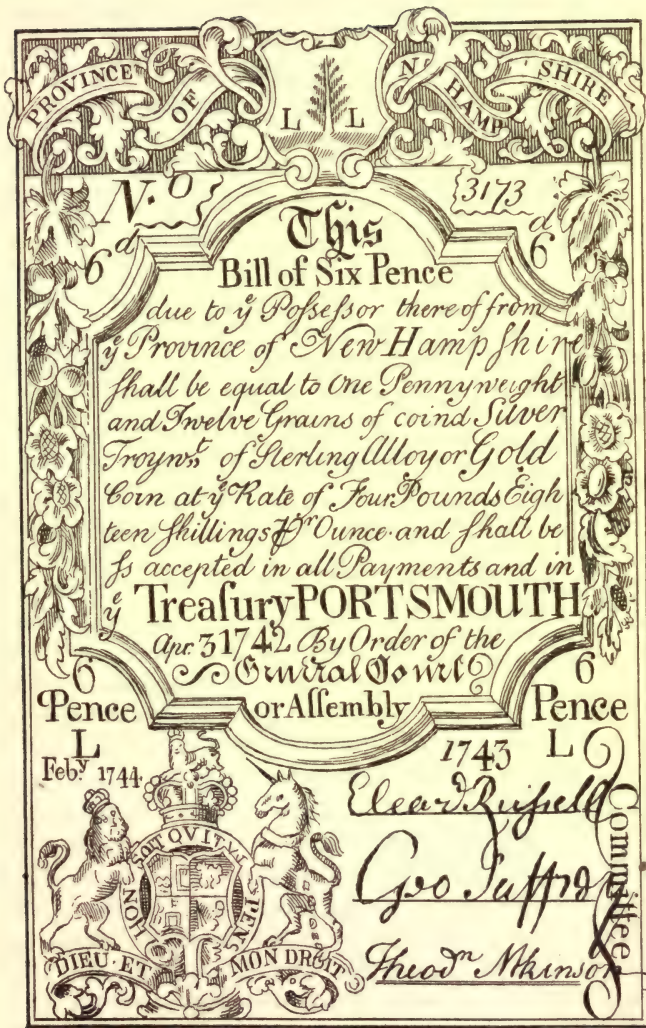 PROVINCE OF N HAMP SHIRE
L L
N.o 3173
6d 6d
This
Bill of Six Pence
due to ye Poſseſsor thereof from
ye Province of New Hampſhire
ſhall be equal to One Pennyweight
and Twelve Grains of coind Silver
Troywt. of Sterling Alloy or Gold
Coin at ye Rate of Four Pounds Eigh
teen ſhillings pr Ounce and ſhall be
ſs accepted in all Payments and in
ye Treaſury PORTSMOUTH
Apr. 3 1742 By Order of the
General Court
or Aſſembly
6 6
Pence Pence
L L
Feby. 1744
1743
Eleazr Ruſsell
Geo Jaffrey
Theodr Atkinson
Committee
HON SOIT QUI PEN
DIEU ET MON DROIT